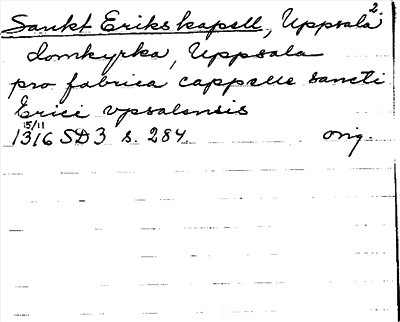 2.
Sankt Erikskapell, Uppsala
domkyrka, Uppsala
pro fabrica cappelle sancti
Erici vpsalensis
15/11
1316 SD3 s. 284 orig.